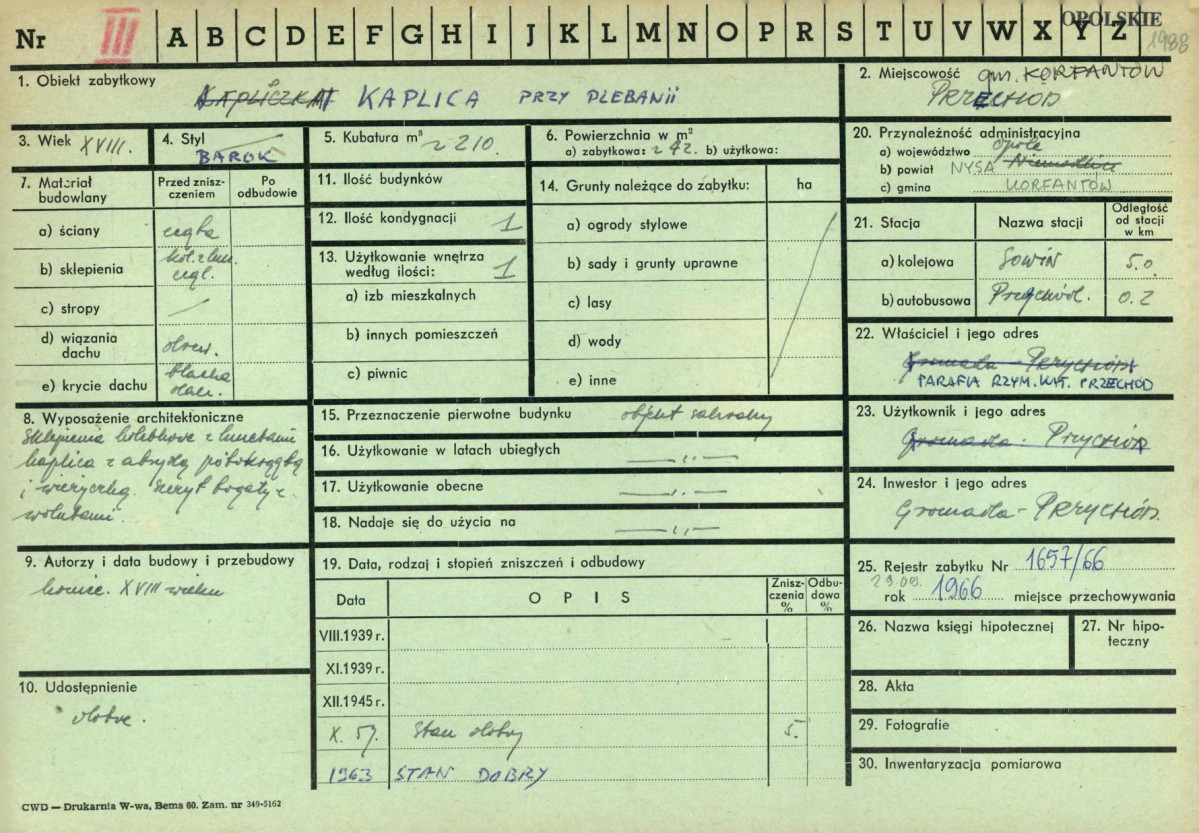 Nr III A B C D E F G H I J K L M N O P R S T U V W X Y Z
OPOLSKIE
1988
1. Obiekt zabytkowy
KAPLICZKA KAPLICA PRZY PLEBANII
2. Miejscowość gm. KORFANTÓW
PRZECHÓD
3. Wiek XVIII.
4. Styl
BAROK
5. Kubatura m³ ~ 210
6. Powierzchnia w m²
a) zabytkowa: ~ 42. b) użytkowa:
20. Przynależność administracyjna
a) województwo Opole
b) powiat NYSA Niemodlin
c) gmina KORFANTÓW
7. Materiał budowlany
Przed zniszczeniem
Po odbudowie
a) ściany cegła
b) sklepienia kol. z lun. cegl.
c) stropy
d) wiązania dachu drew.
e) krycie dachu blacha
11. Ilość budynków
12. Ilość kondygnacji 1
13. Użytkowanie wnętrza według ilości: 1
a) izb mieszkalnych
b) innych pomieszczeń
c) piwnic
14. Grunty należące do zabytku: ha
a) ogrody stylowe
b) sady i grunty uprawne
c) lasy
d) wody
e) inne
21. Stacja
Nazwa stacji
Odległość od stacji w km
a) kolejowa Sowin 5.0
b) autobusowa Przychód. 0.2
22. Właściciel i jego adres
Gromada - PRZYCHÓD
PARAFIA RZYM. KAT. PRZECHÓD
8. Wyposażenie architektoniczne
Sklepienia kolebkove z lunetami
kaplica z absydą półokrągłą
i wieżyczką. Szczyt bogaty z
wolutami.
15. Przeznaczenie pierwotne budynku objekt sakralny
16. Użytkowanie w latach ubiegłych —„—
17. Użytkowanie obecne —„—
18. Nadaje się do użycia na —„—
23. Użytkownik i jego adres
Gromada - PRZYCHÓD
24. Inwestor i jego adres
Gromada - PRZYCHÓD.
9. Autorzy i data budowy i przebudowy
koniec. XVIII wieku
19. Data, rodzaj i stopień zniszczeń i odbudowy
Data
OPIS
Zniszczenia %
Odbudowa %
VIII.1939 r.
XI.1939 r.
XII.1945 r.
X. 59. Stan dobry 5.
1963 STAN DOBRY
25. Rejestr zabytku Nr 1657/66
rok 1966 miejsce przechowywania
26. Nazwa księgi hipotecznej
27. Nr hipoteczny
28. Akta
29. Fotografie
30. Inwentaryzacja pomiarowa
10. Udostępnienie
dobre.
CWD — Drukarnia W-wa, Bema 60. Zam. nr 349-5162